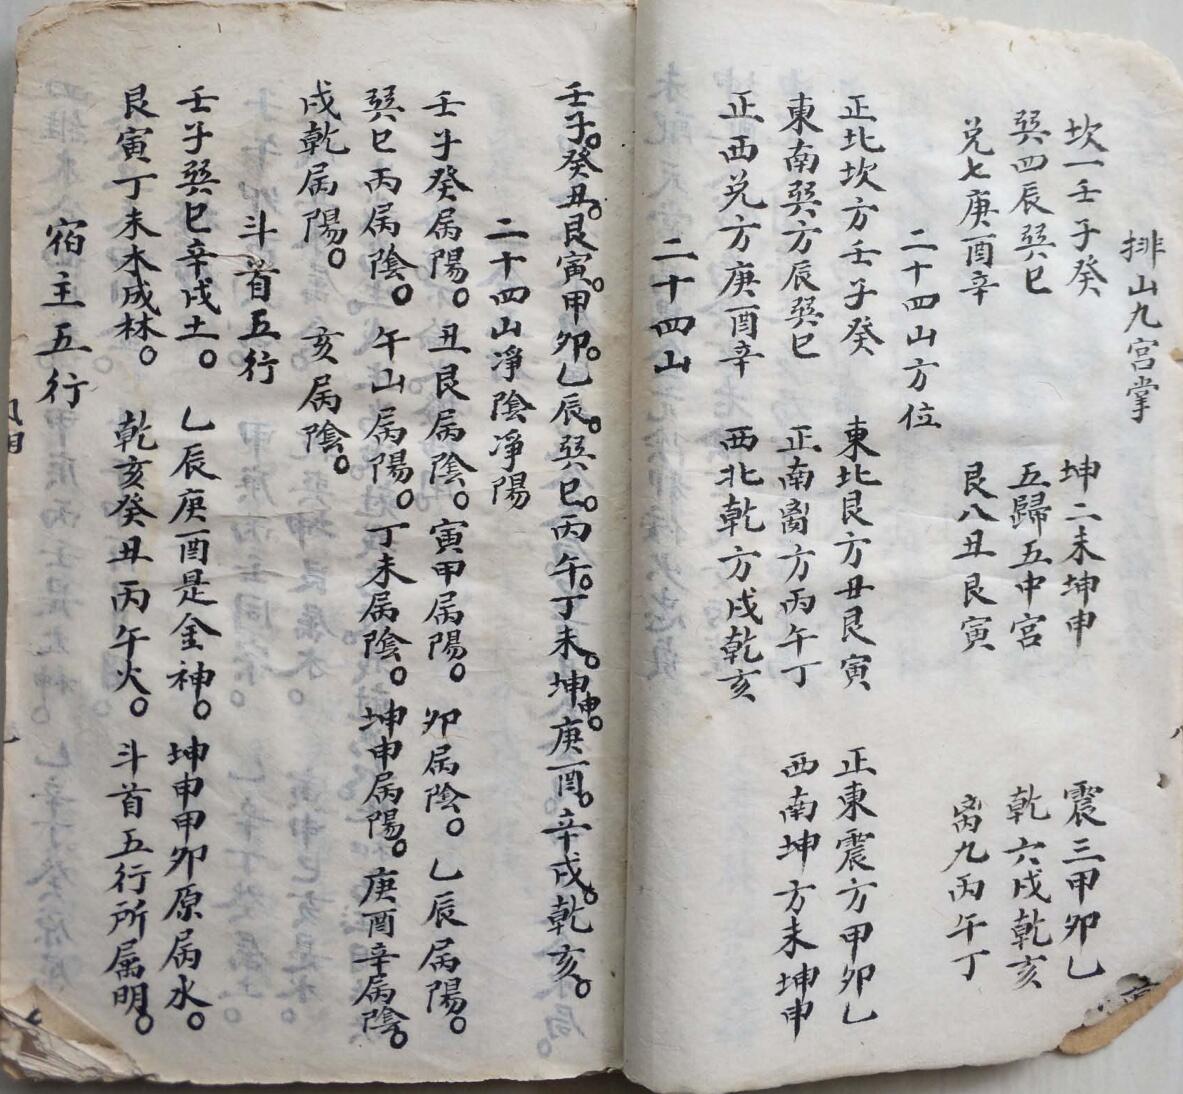 排山九宮掌
坎一壬子癸 坤二未坤申 震三甲卯乙
巽四辰巽巳 五歸五中宮 乾六戌乾亥
兑七庚酉辛 艮八丑艮寅 离九丙午丁
二十四山方位
正北坎方壬子癸 東北艮方丑艮寅 正東震方甲卯乙
東南巽方辰巽巳 正南离方丙午丁 西南坤方未坤申
正西兑方庚酉辛 西北乾方戌乾亥
二十四山
壬子。癸丑。艮寅。甲卯。乙辰。巽巳。丙午。丁未。坤申。庚酉。辛戌。乾亥。
二十四山凈陰凈陽
壬子癸属陽。丑艮属陰。寅甲属陽。卯属陰。乙辰属陽。
巽巳丙属陰。午山属陽。丁未属陰。坤申属陽。庚酉辛属陰。
戌乾属陽。亥属陰。
斗首五行
壬子巽巳辛戌土。乙辰庚酉是金神。坤申甲卯原属水。
艮寅丁未木成林。乾亥癸丑丙午火。斗首五行所属明。
宿主五行